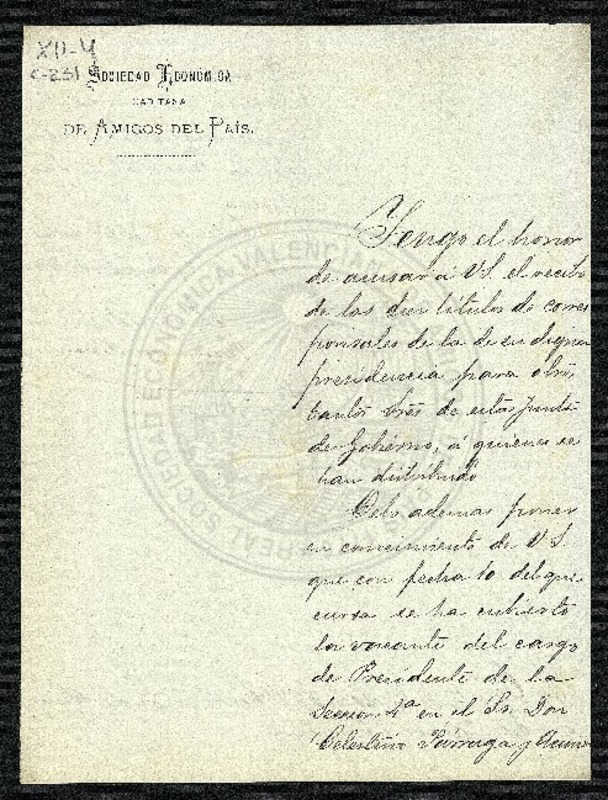 XII-4
C-231
SOCIEDAD ECONÓMICA
GADITANA
DE AMIGOS DEL PAÍS.
REAL SOCIEDAD ECONOMICA VALENCIANA
Tengo el honor
de acusar á V.S. el recibo
de los diez titulos de corres
ponsales de la de su digna
presidencia para otros
tantos Sres de esta Junta
de Gobierno, á quienes se
han distribuido
Debo ademas poner
en conocimiento de V.S.
que con fecha 10 del que
cursa se ha cubierto
la vacante del cargo
de Presidente de la
Seccion 4ª en el Sr. Don
Celestino Párraga y